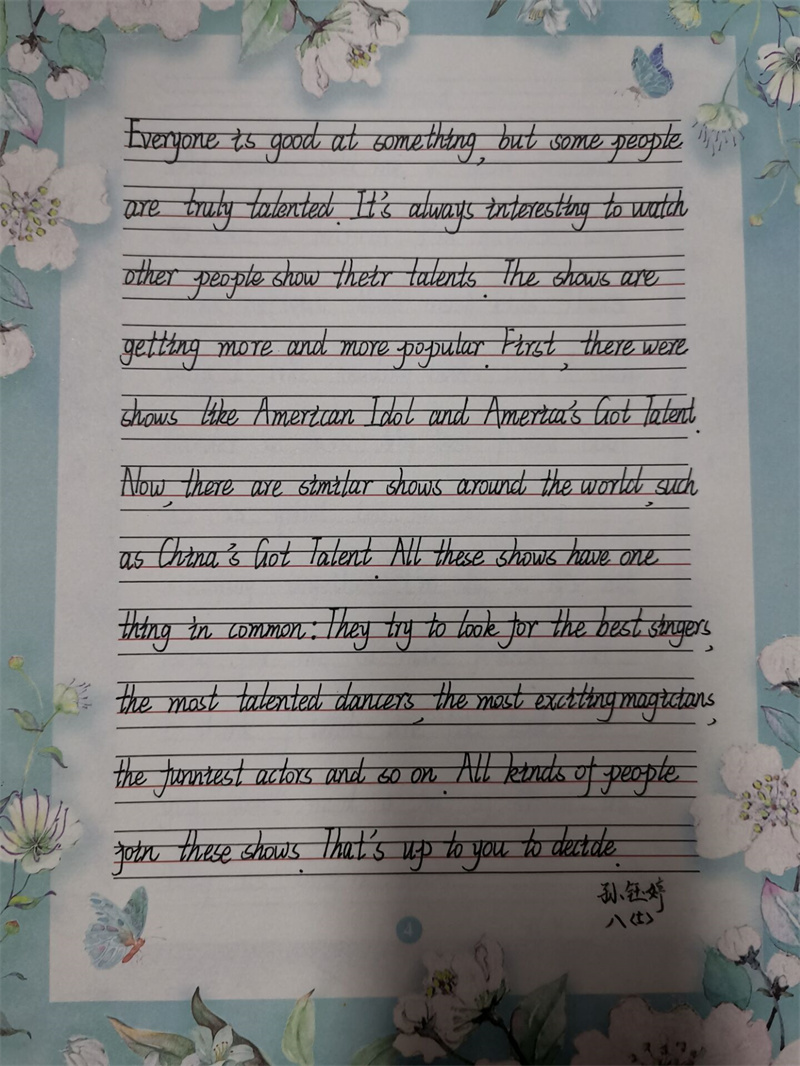 Everyone is good at something, but some people
are truly talented. It's always interesting to watch
other people show their talents. The shows are
getting more and more popular. First, there were
shows like American Idol and America's Got Talent.
Now, there are similar shows around the world, such
as China's Got Talent. All these shows have one
thing in common: They try to look for the best singers,
the most talented dancers, the most exciting magicians,
the funniest actors and so on. All kinds of people
join these shows. That's up to you to decide.
孙钰婷
八(七)
4